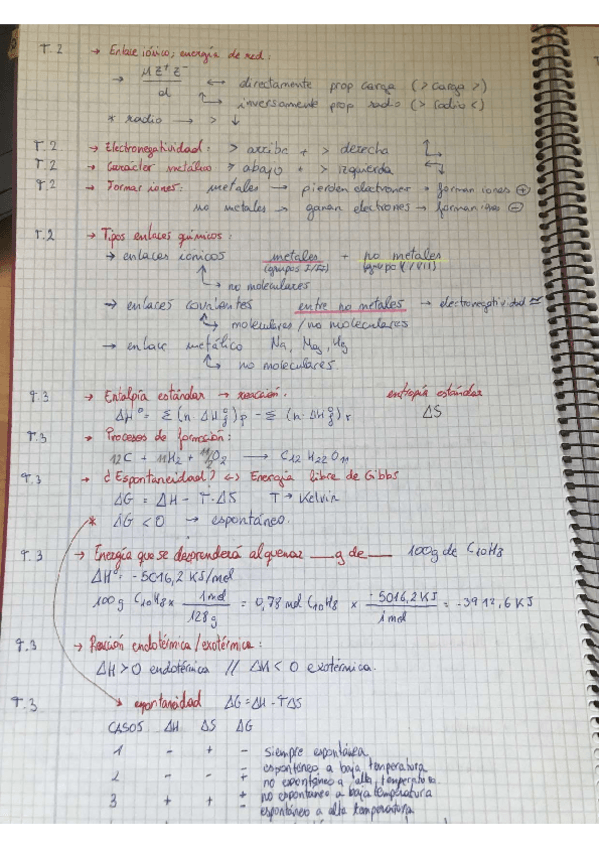 T.2 → Enlace iónico; energía de red:
→ M Z⁺ Z⁻ / d ↔ directamente prop carga (> carga >)
↳ inversamente prop radio (> radio <)
* radio → > ↓
T.2 → Electronegatividad: > arriba + > derecha
T.2 → Carácter metálico > abajo + > izquierda
T.2 → Formar iones: metales → pierden electrones → forman iones ⊕
no metales → ganan electrones → forman iones ⊖
T.2 → Tipos enlaces químicos:
→ enlaces iónicos metales + no metales
(grupos I/II) (grupo V/VII)
↳ no moleculares
→ enlaces covalentes entre no metales → electronegatividad ≃
↳ moleculares / no moleculares
→ enlace metálico Na, Mg, Hg
↳ no moleculares
T.3 → Entalpía estándar → reacción. entropía estándar
ΔH° = Σ (n · ΔH°f)p - Σ (n · ΔH°f)r ΔS
T.3 → Procesos de formación:
12C + 11H₂ + 11/2 O₂ → C₁₂H₂₂O₁₁
T.3 → ¿Espontaneidad? ↔ Energía libre de Gibbs
ΔG = ΔH - T·ΔS T → Kelvin
* ΔG < 0 → espontáneo.
T.3 → Energía que se desprenderá al quemar __g de __ 100g de C₁₀H₈
ΔH° = -5016,2 KJ/mol
100g C₁₀H₈ × 1mol / 128g = 0,78 mol C₁₀H₈ × -5016,2KJ / 1mol = -3912,6 KJ
T.3 → Reacción endotérmica / exotérmica:
ΔH > 0 endotérmica // ΔH < 0 exotérmica.
T.3 → espontaneidad ΔG = ΔH - TΔS
CASOS ΔH ΔS ΔG
1 - + - siempre espontánea
2 - - - espontáneo a baja temperatura
+ no espontáneo a alta temperatura.
3 + + + no espontaneo a baja temperatura
- espontáneo a alta temperatura